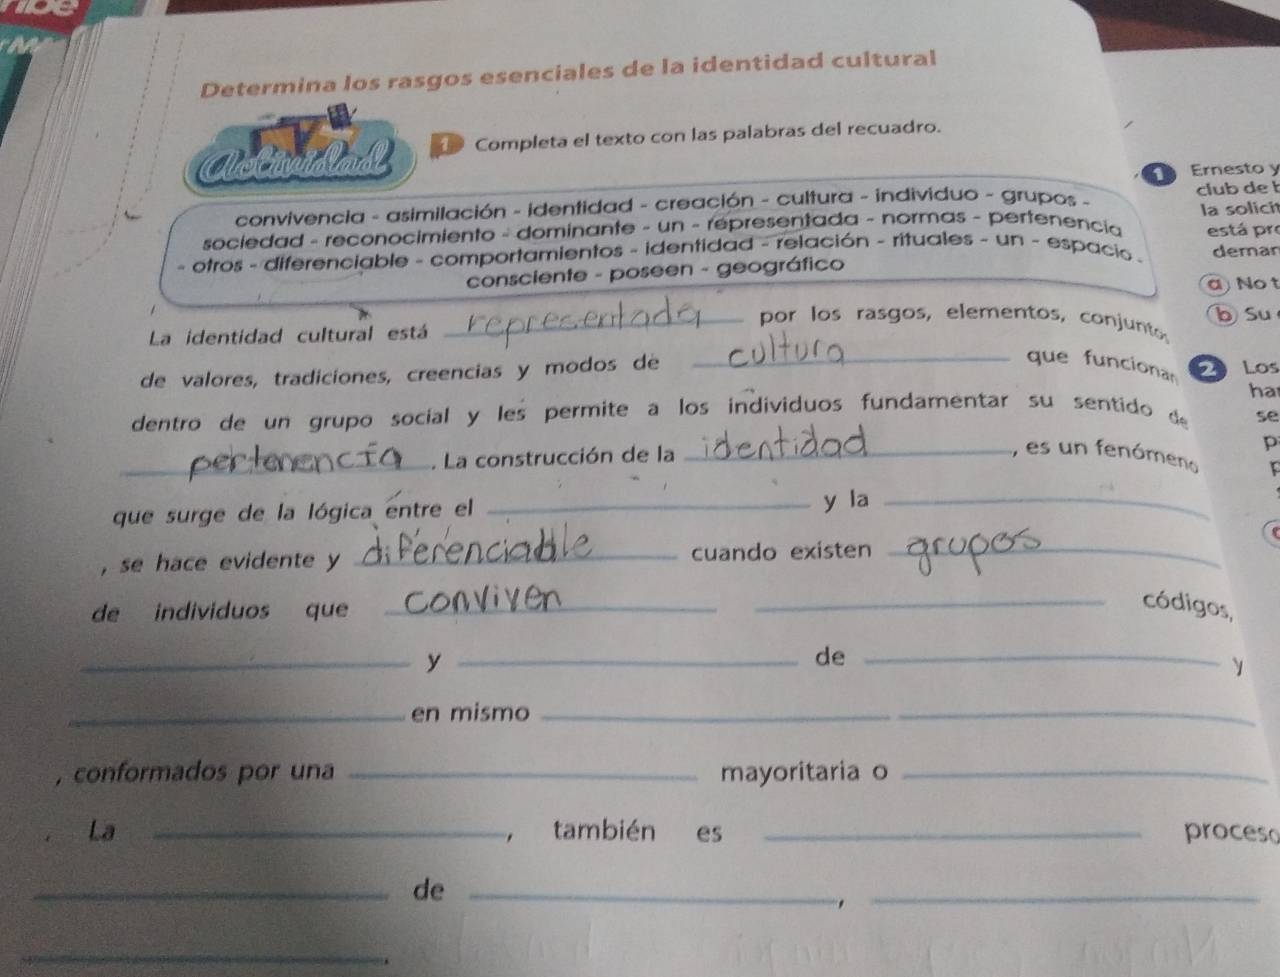 Determina los rasgos esenciales de la identidad cultural
Actividad
1 Completa el texto con las palabras del recuadro.
convivencia - asimilación - identidad - creación - cultura - individuo - grupos -
sociedad - reconocimiento - dominante - un - representada - normas - pertenencia
- otros - diferenciable - comportamientos - identidad - relación - rituales - un - espacio -
consciente - poseen - geográfico
La identidad cultural está representada por los rasgos, elementos, conjuntos
de valores, tradiciones, creencias y modos de cultura que funcionan
dentro de un grupo social y les permite a los individuos fundamentar su sentido de
pertenencia. La construcción de la identidad, es un fenómeno
que surge de la lógica entre el ____ y la ____
, se hace evidente y diferenciable cuando existen grupos
de individuos que conviven ____ códigos,
____ y ____ de ____ y
____ en mismo ____ ____
, conformados por una ____ mayoritaria o ____
. La ____, también es ____ proceso
____ de ____, ____
____.
1 Ernesto y
club de
la solicit
está pro
deman
a) No t
b) Su
2 Los
ha
se